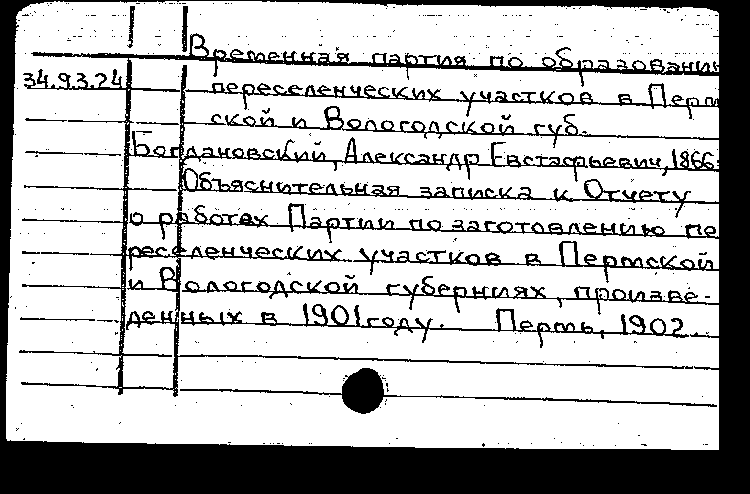 Временная партия по образованию
34.9.3.24
переселенческих участков в Перм
ской и Вологодской губ.
Богдановский, Александр Евстафьевич, 1866-
Объяснительная записка к Отчету
о работах Партии по заготовлению пе
реселенческих участков в Пермской
и Вологодской губерниях, произве-
денных в 1901 году. Пермь, 1902.